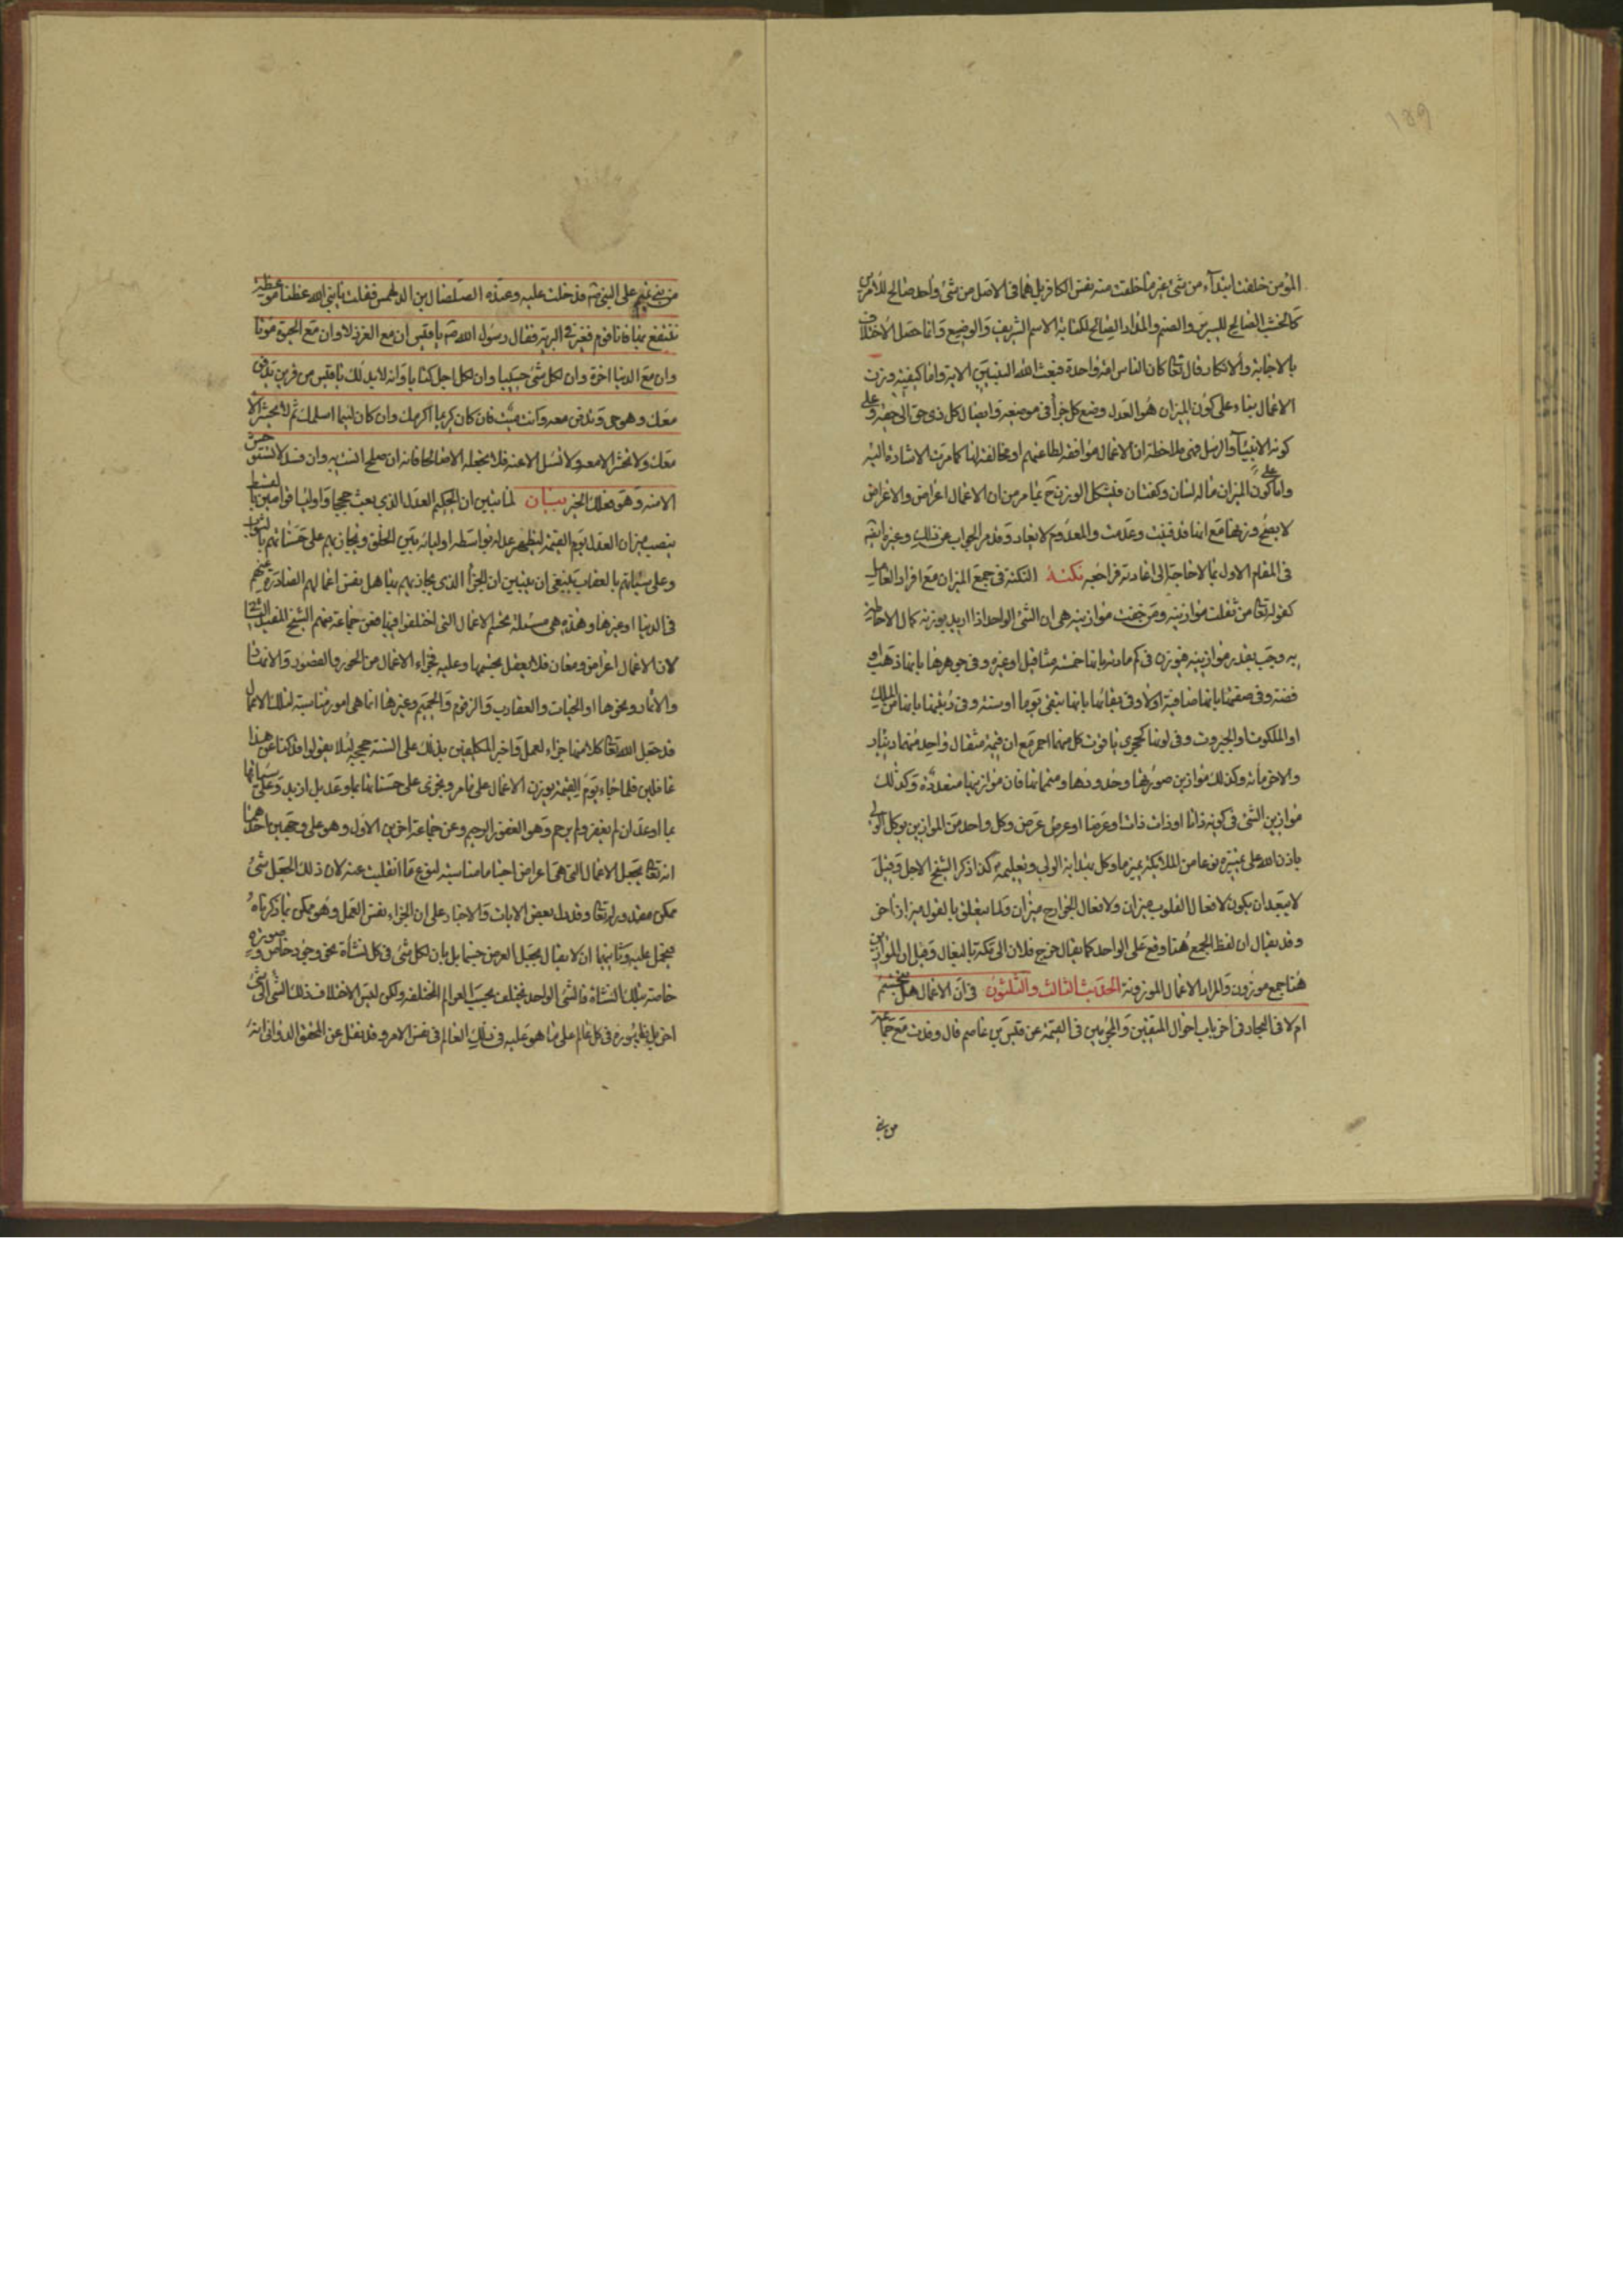 189
المؤمن خلقت ابتداء من شئ غير ما خلقت منه نفس الكافر بل هما فى الاصل من شئ واحد صالح للأمرين
كالخشب الصالح للسرير والصنم والمداد الصالح لكتابة الاسم الشريف والوضيع وانما حصل الاختلاف
بالاجابة والانكار قال تعالى كان الناس امة واحدة فبعث الله النبيين الاية واما كيفية وزن
الاعمال بناء على كون الميزان هو العدل وضع كل جزأ فى موضعه وايصال كل ذى حق الى حقه وعلى
كونه الانبيآء والرسل فهى ملاحظة ان الاعمال موافقة لطاعتهم او مخالفة لها كما مرت الاشارة اليه
واما على كون الميزان ماله لسان وكفتان فيشكل الوزن ح بما مر من ان الاعمال اعراض والاعراض
لا يصح وزنها مع انها قد فنيت وعدمت والمعدوم لا يعاد وقد مر الجواب عن ذلك وعن
فى المقام الاول بما لا حاجة الى اعادته فراجعه نكتة النكتة فى جمع الميزان مع افراد العامل
كقوله تعالى من ثقلت موازينه ومن خفت موازينه هى ان الشئ الواحد اذا اريد بوزنه كمال الاحاطة
به وجب بعذر موازينه فيوزن فى كم مادته بانها خمسة مثاقيل او غيره وفى جوهرها بانها ذهب او
فضة وفى صفتها بانها صافية اولا وفى بقائها بانها تبقى يوما او سنة وفى رتبتها بانها من الملك
او الملكوت او الجبروت وفى لونها كحجرى ياقوت كل منهما احمر مع ان قيمة مثقال واحد منهما دينار
والاخر مأة وكذلك موازين صورها وحدودها ومتمماتها فان موازينها متعددة وكذلك
موازين الشئ فى كونه ذاتا او ذات ذات او عرضا او عرض عرض وكل واحد من الموازين يوكل الولى
باذن الله على نوعا من الملائكة يميز ما وكل به الولى وتعليمه كذا ذكر الشيخ الاجل وقيل
لا يبعد ان يكون لافعال القلوب ميزان ولافعال الجوارح ميزان ولما يتعلق بالقول ميزان اخر
وقد يقال ان لفظ الجمع هنا وقع على الواحد كما يقال خرج فلان الى مكة بالبغال وقيل ان الموازين
هنا جمع موزون والمراد الاعمال الموزونة الحديث الثالث والثلثون فى ان الاعمال هل تتجسم
ام لا فى البحار فى اخر باب احوال المتقين والمجرمين فى القيمة عن قيس بن عاصم قال وفدت مع جماعة
من بنى
من بنى تميم على النبى ص فدخلت عليه وعنده الصلصال بن الدلهمس فقلت يا نبى الله عظنا موعظة
ننتفع بها فانا قوم فى البرية فقال رسول الله ص يا قيس ان مع العز ذلا وان مع الحيوة موتا
وان مع الدنيا اخرة وان لكل شئ حسيبا وان لكل اجل كتابا وانه لا بد لك يا قيس من قرين يدفن
معك وهو حى وتدفن معه وانت ميت فان كان كريما اكرمك وان كان لئيما اسلمك ثم لا يحشر الا
معك ولا تحشر الا معه ولا تسئل الا عنه فلا تجعله الا صالحا فانه ان صلح انست به وان فسد لا تستوحش
الا منه وهو فعلك الخبر بيان لما تبين ان الحكيم العدل الذى بعث حججا واوليا قوامين بالقسط
ينصب ميزان العدل يوم القيمة ليظهر عدله بواسطة اوليائه بين الخلق ويجازيهم على حسناتهم بالثواب
وعلى سيئاتهم بالعقاب ينبغى ان يتبين ان الجزأ الذى يجازيهم بها هل نفس اعمالهم الصادرة عنهم
فى الدنيا او غيرها وهذه هى مسئلة تجسم الاعمال التى اختلفوا فيها فعن جماعة منهم الشيخ المفيد
لان الاعمال اعراض ومعان فلا يعقل تجسمها وعليه فجزاء الاعمال من الحور والقصور
والانهار ونحوها او الحيات والعقارب والزقوم والجحيم وغيرها انما هى امور مناسبة لتلك الاعمال
قد جعل الله تعالى كلا منها جزاء لعمل واخبر المكلفين بذلك على السنة حججه لئلا يقولوا قد كنا عن هذا
غافلين فلما جاء يوم القيمة يوزن الاعمال على ما مر ويجزى على حسناتها بما وعد بل ازيد وعلى سيئاتها
بما اوعد ان لم يغفر ولم يرحم وهو الغفور الرحيم وعن جماعة اخرين الاول وهو على وجهين احدهما
انه تعالى يجعل الاعمال التى هى اعراض اجساما مناسبة لنوع ما انقلبت عنه لان ذلك الجعل شئ
ممكن مقدور له تعالى وقد دل بعض الايات والاخبار على ان الجزاء نفس العمل وهو ممكن بما ذكرناه
فيحمل عليه وثانيهما ان لا يقال بجعل العرض جسما بل بان لكل شئ فى كل نشأة نحو وجود خاص وصورة
خاصة بتلك النشأة فالشئ الواحد يختلف بحسب العوالم المختلفة ولكن ليس الاختلاف ذلك الشئ الى شئ
اخر بل ظهوره فى كل عالم على ما هو عليه فى ذلك العالم فى نفس الامر وقد نقل عن المحقق الدوانى انه